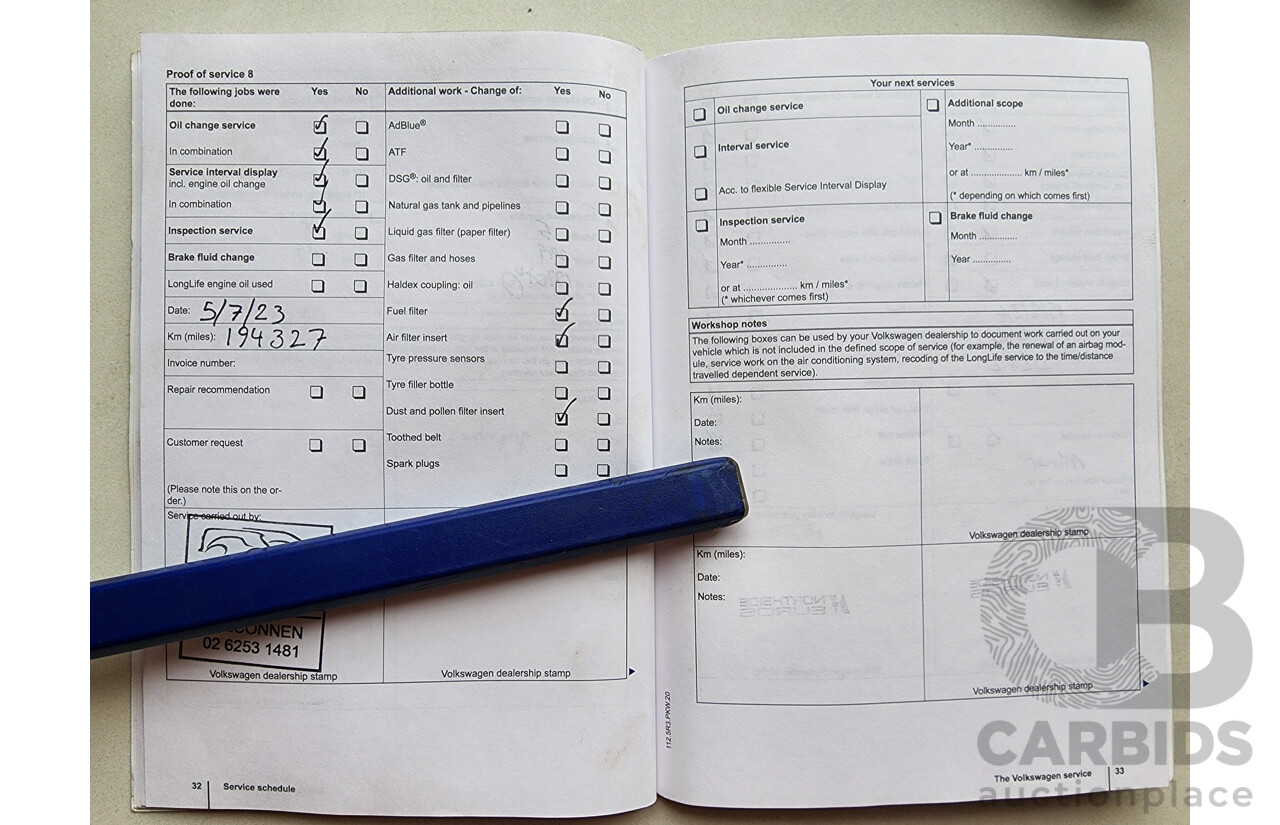 Proof of service 8
The following jobs were done: Yes No
Oil change service
In combination
Service interval display
incl. engine oil change
In combination
Inspection service
Brake fluid change
LongLife engine oil used
Date: 5/7/23
Km (miles): 194327
Invoice number:
Repair recommendation
Customer request
(Please note this on the or-
der.)
Service carried out by:
02 6253 1481
Volkswagen dealership stamp
Additional work - Change of: Yes No
AdBlue®
ATF
DSG®: oil and filter
Natural gas tank and pipelines
Liquid gas filter (paper filter)
Gas filter and hoses
Haldex coupling: oil
Fuel filter
Air filter insert
Tyre pressure sensors
Tyre filler bottle
Dust and pollen filter insert
Toothed belt
Spark plugs
Volkswagen dealership stamp
32 Service schedule
Your next services
Oil change service
Interval service
Acc. to flexible Service Interval Display
Inspection service
Month ..............
Year* ..............
or at ................... km / miles*
(* whichever comes first)
Additional scope
Month .............
Year* .............
or at .................. km / miles*
(* depending on which comes first)
Brake fluid change
Month .............
Year .............
Workshop notes
The following boxes can be used by your Volkswagen dealership to document work carried out on your
vehicle which is not included in the defined scope of service (for example, the renewal of an airbag mod-
ule, service work on the air conditioning system, recoding of the LongLife service to the time/distance
travelled dependent service).
Km (miles):
Date:
Notes:
Volkswagen dealership stamp
Km (miles):
Date:
Notes:
Volkswagen dealership stamp
112.5R3.PKW.20
The Volkswagen service 33
CB
CARBIDS
auctionplace